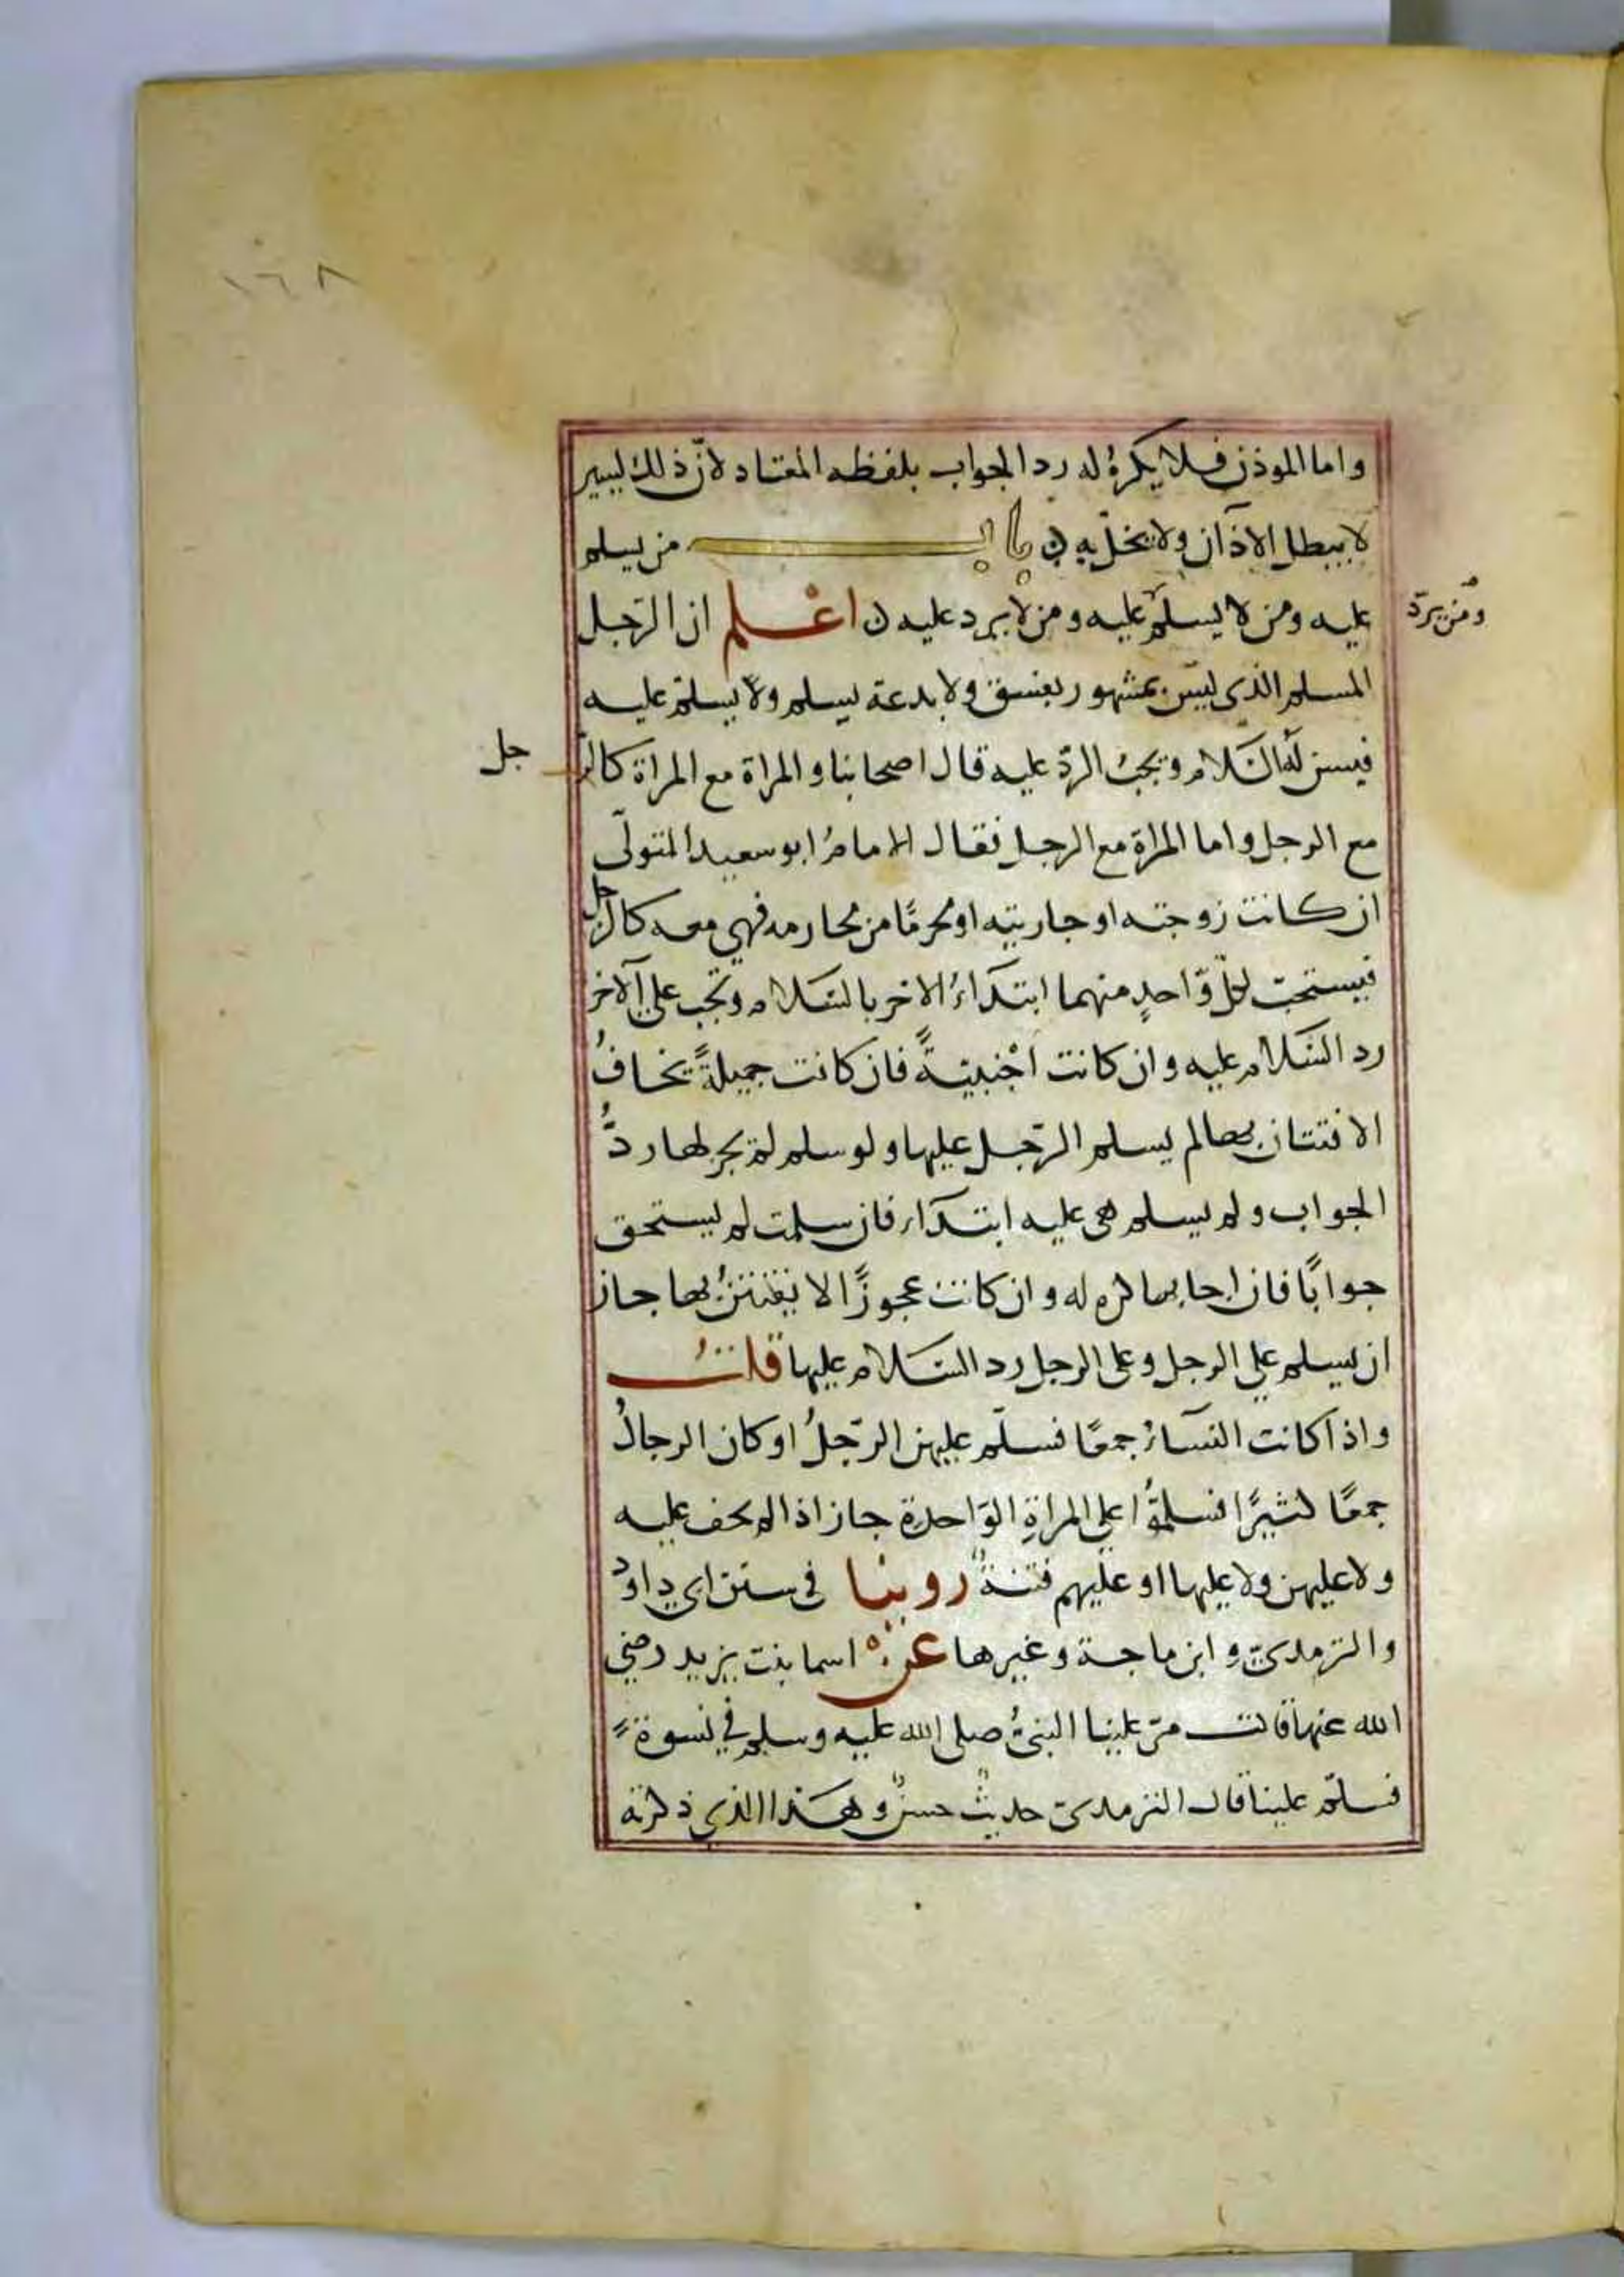 ١٦٨
واما الموذن فلا يكرهُ له رد الجواب بلفظه المعتاد لانّ ذلك يسير
لا يبطل الاذان ولا يخلّ به ن باب من يسلم
عليه ومن لا يسلّم عليه ومن لا يرد عليه ن اعْلم ان الرّجل
ومن يردّ
المسلم الذى ليس بمشهور بفسق ولا بدعة يسلم ولا يسلّم عليه
فيسن له السّلام ويجبُ الردّ عليه قال اصحابنا والمراة مع المراة كالرّ
جل
مع الرجل واما المراة مع الرجل فقال الامامُ ابو سعيد المتولّى
ان كانت زوجته او جاريته او محرمًا من محارمه فهي معه كالرجل
فيستحبّ لكلّ وّاحدٍ منهما ابتداءُ الاخر بالسّلام ويجب على الآخر
رد السّلام عليه وان كانت اجْنبيّةً فان كانت جميلةً يخافُ
الافتتان بها لم يسلم الرّجل عليها ولو سلم لم يجز لها ردُّ
الجواب ولم يسلم هى عليه ابتداء فان سلمت لم يستحق
جوابًا فان اجابها كره له وان كانت عجوزًا لا يفتتنُ بها جاز
ان يسلم علي الرجل وعلى الرجل رد السّلام عليها قلتُ
واذا كانت النساءُ جمعًا فسلّم عليهن الرّجلُ او كان الرجالُ
جمعًا كثيرًا فسلّمُوا علي المراةِ الوَاحدة جاز اذا لم يخف عليه
ولا عليهن ولا عليها او عليهم فتنةٌ روينا في سنن ابي داود
والترمذيّ وابن ماجة وغيرها عنْ اسما بنت يزيد رضي
الله عنها قالت مرّ علينا النبيُّ صلى الله عليه وسلم في نسوةٍ
فسلّم علينا قال الترمذيّ حديثٌ حسنٌ وهذا الذي ذكرته